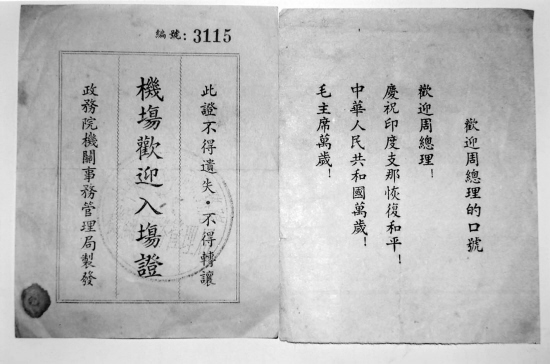 歡迎周總理的口號
歡迎周總理！
慶祝印度支那恢復和平！
中華人民共和國萬歲！
毛主席萬歲！
編號：3115
此證不得遺失·不得轉讓
機場歡迎入場證
政務院機關事務管理局製發